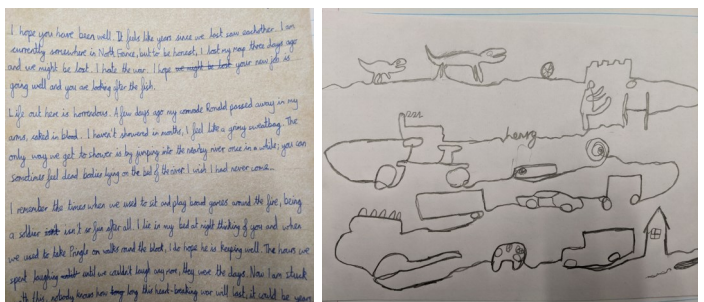 I hope you have been well. It feels like years since we last saw eachother. I am
currently somewhere in North France, but to be honest, I lost my map three days ago
and we might be lost. I hate the war. I hope we might be lost your new job is
going well and you are looking after the fish.
Life out here is horrendous. A few days ago my comrade Ronald passed away in my
arms, soaked in blood. I haven't showered in months, I feel like a grimy sweatbag. The
only way we get to shower is by jumping into the nearby river once in a while; you can
sometimes feel dead bodies lying on the bed of the river. I wish I had never come...
I remember the times when we used to sit and play board games around the fire, being
a soldier isn't so fun after all. I lie in my bed at night thinking of you and when
we used to take Pringle on walks round the block, I do hope he is keeping well. The hours we
spent laughing until we couldn't laugh any more, they were the days. Now I am stuck
with this, nobody knows how long this heart-breaking war will last, it could be years
henry